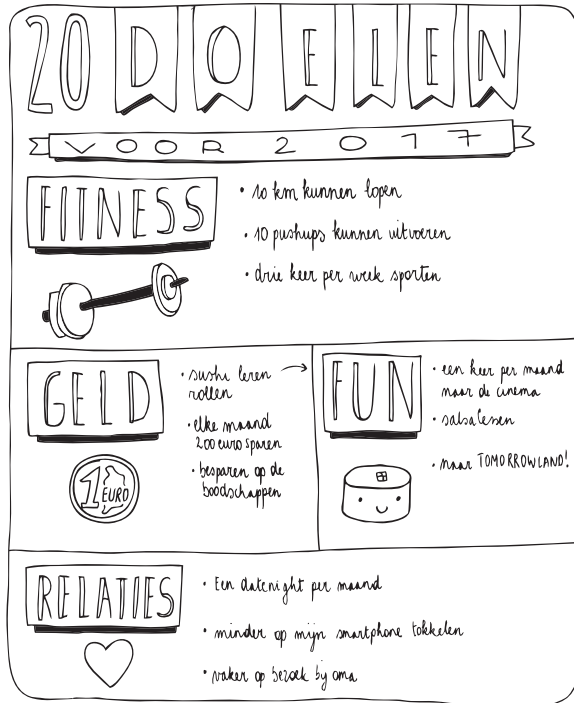 20 DOELEN
VOOR 2017
FITNESS
• 10 km kunnen lopen
• 10 pushups kunnen uitvoeren
• drie keer per week sporten
GELD
• sushi leren
rollen
• elke maand
200 euro sparen
• besparen op de
boodschappen
1 EURO
FUN
• een keer per maand
naar de cinema
• salsalessen
• naar TOMORROWLAND!
RELATIES
• Een datenight per maand
• minder op mijn smartphone tokkelen
• vaker op bezoek bij oma